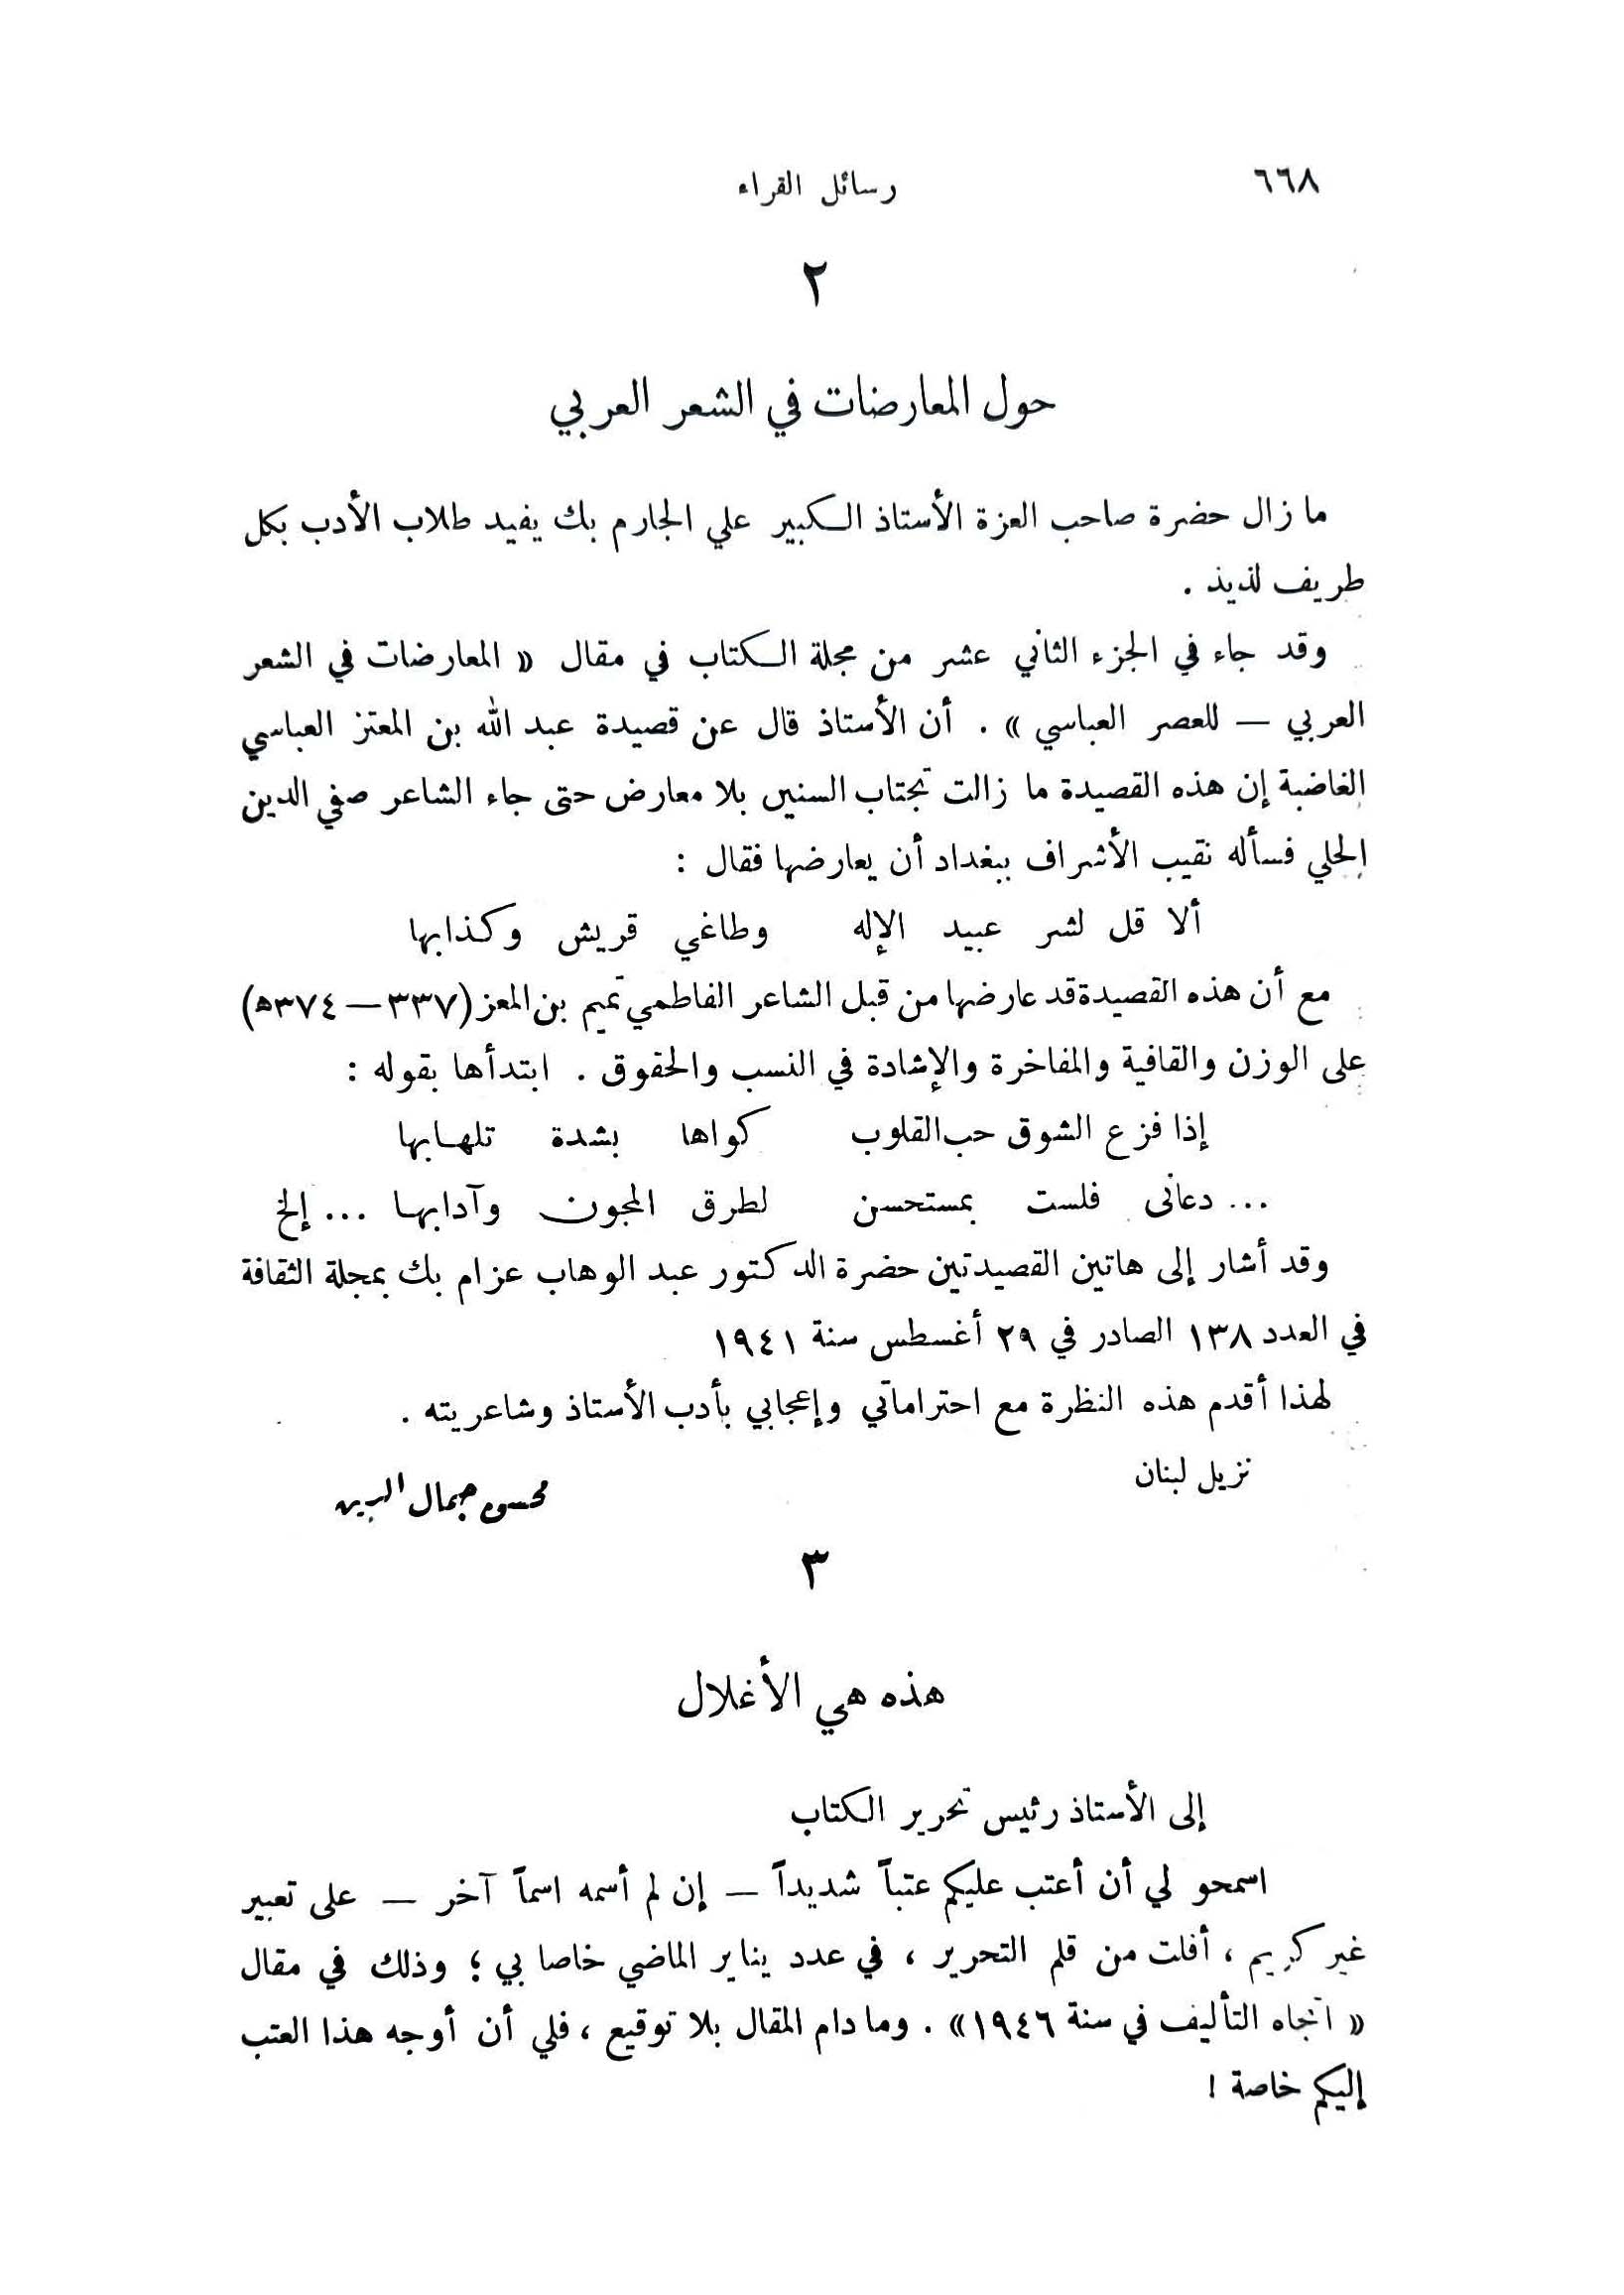 ٦٦٨ رسائل القراء
٢
حول المعارضات في الشعر العربي
ما زال حضرة صاحب العزة الأستاذ الكبير علي الجارم بك يفيد طلاب الأدب بكل
طريف لذيذ .
وقد جاء في الجزء الثاني عشر من مجلة الكتاب في مقال « المعارضات في الشعر
العربي — للعصر العباسي » . أن الأستاذ قال عن قصيدة عبد الله بن المعتز العباسي
الغاضبة إن هذه القصيدة ما زالت تجتاب السنين بلا معارض حتى جاء الشاعر صفي الدين
الحلي فسأله نقيب الأشراف ببغداد أن يعارضها فقال :
ألا قل لشر عبيد الإله وطاغي قريش وكذابها
مع أن هذه القصيدة قد عارضها من قبل الشاعر الفاطمي تميم بن المعز (٣٣٧ — ٣٧٤ھ)
على الوزن والقافية والمفاخرة والإشادة في النسب والحقوق . ابتدأها بقوله :
إذا فزع الشوق حب القلوب كواها بشدة تلهابها
... دعانى فلست بمستحسن لطرق المجون وآدابها ... إلخ
وقد أشار إلى هاتين القصيدتين حضرة الدكتور عبد الوهاب عزام بك بمجلة الثقافة
في العدد ١٣٨ الصادر في ٢٩ أغسطس سنة ١٩٤١
لهذا أقدم هذه النظرة مع احتراماتي وإعجابي بأدب الأستاذ وشاعريته .
نزيل لبنان محسن جمال الدين
٣
هذه هي الأغلال
إلى الأستاذ رئيس تحرير الكتاب
اسمحو لي أن أعتب عليكم عتباً شديداً — إن لم أسمه اسماً آخر — على تعبير
غير كريم ، أفلت من قلم التحرير ، في عدد يناير الماضي خاصا بي ؛ وذلك في مقال
« اتجاه التأليف في سنة ١٩٤٦ » . وما دام المقال بلا توقيع ، فلي أن أوجه هذا العتب
إليكم خاصة !